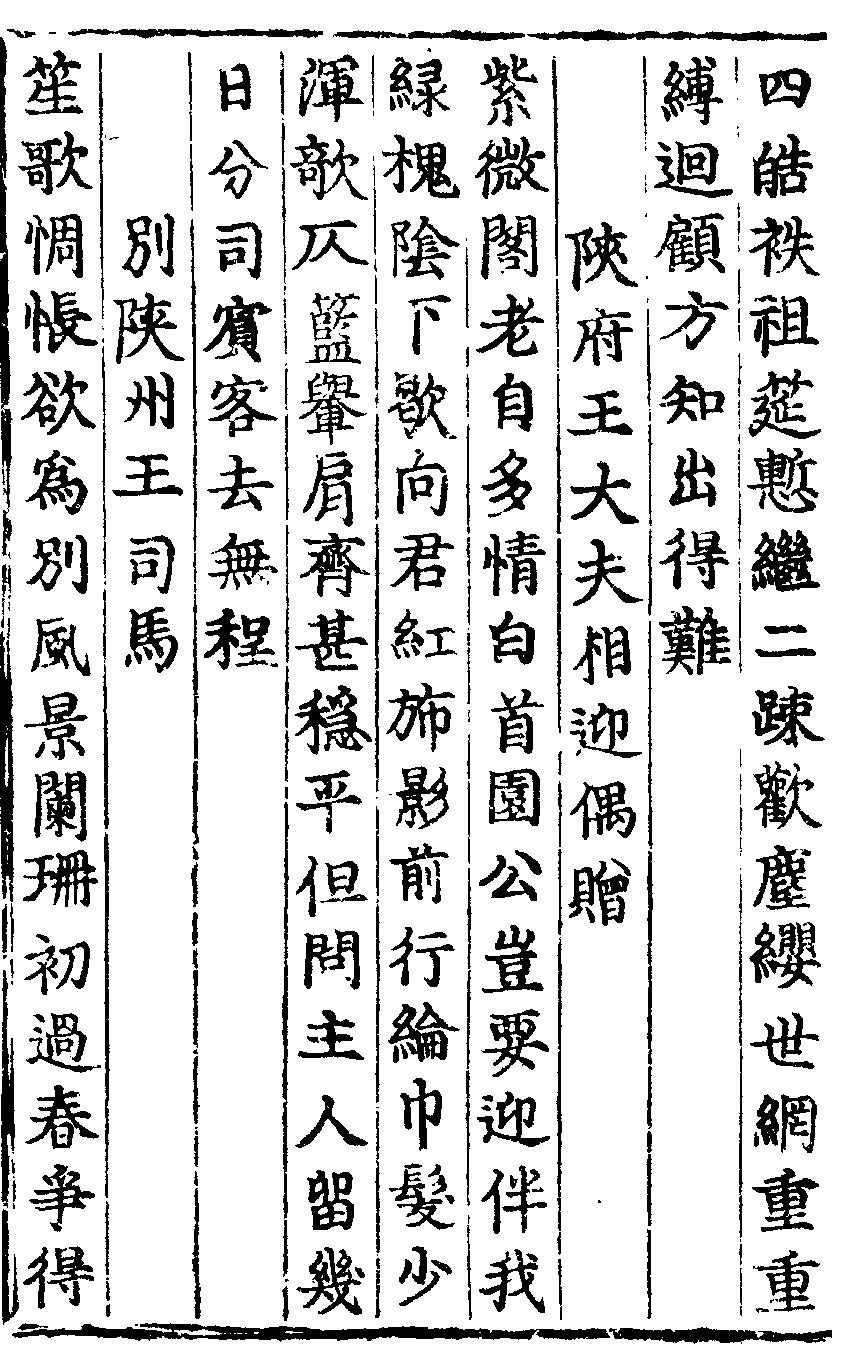 四皓袟祖莚慙繼二踈歡塵纓世網重重
縛迴顧方知出得難
陝府王大夫相迎偶贈
紫微閣老自多情白首園公豈要迎伴我
緑槐陰下歇向君紅斾影前行綸巾髮少
渾欹仄籃轝肩齊甚穩平但問主人留幾
日分司賓客去無程
別陝州王司馬
笙歌惆悵欲爲別風景闌珊初過春爭得